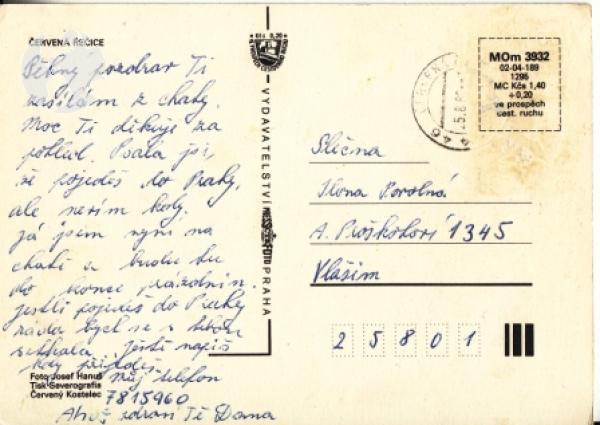 ČERVENÁ ŘEČICE
Pěkný pozdrav Ti
zasílám z chaty.
Moc Ti děkuji za
pohled. Psala jsi,
že pojedeš do Prahy,
ale nevím kdy.
Já jsem nyní na
chatě a budu tu
do konce prázdnin.
Jestli pojedeš do Prahy
ráda bych se s tebou
setkala. Jestli napiš
kdy přijedeš
můj telefon
7815960
Ahoj zdraví Tě Dana
Foto Josef Hanuš
Tisk Severografia
Červený Kostelec
VYDAVATELSTVÍ PRESSFOTO PRAHA
MOm 3932
02-04-189
1295
MC Kčs 1,40
+0,20
ve prospěch
cest. ruchu
Slečna
Ilona Povolná
A. Proškotoví 1345
Vlašim
25801